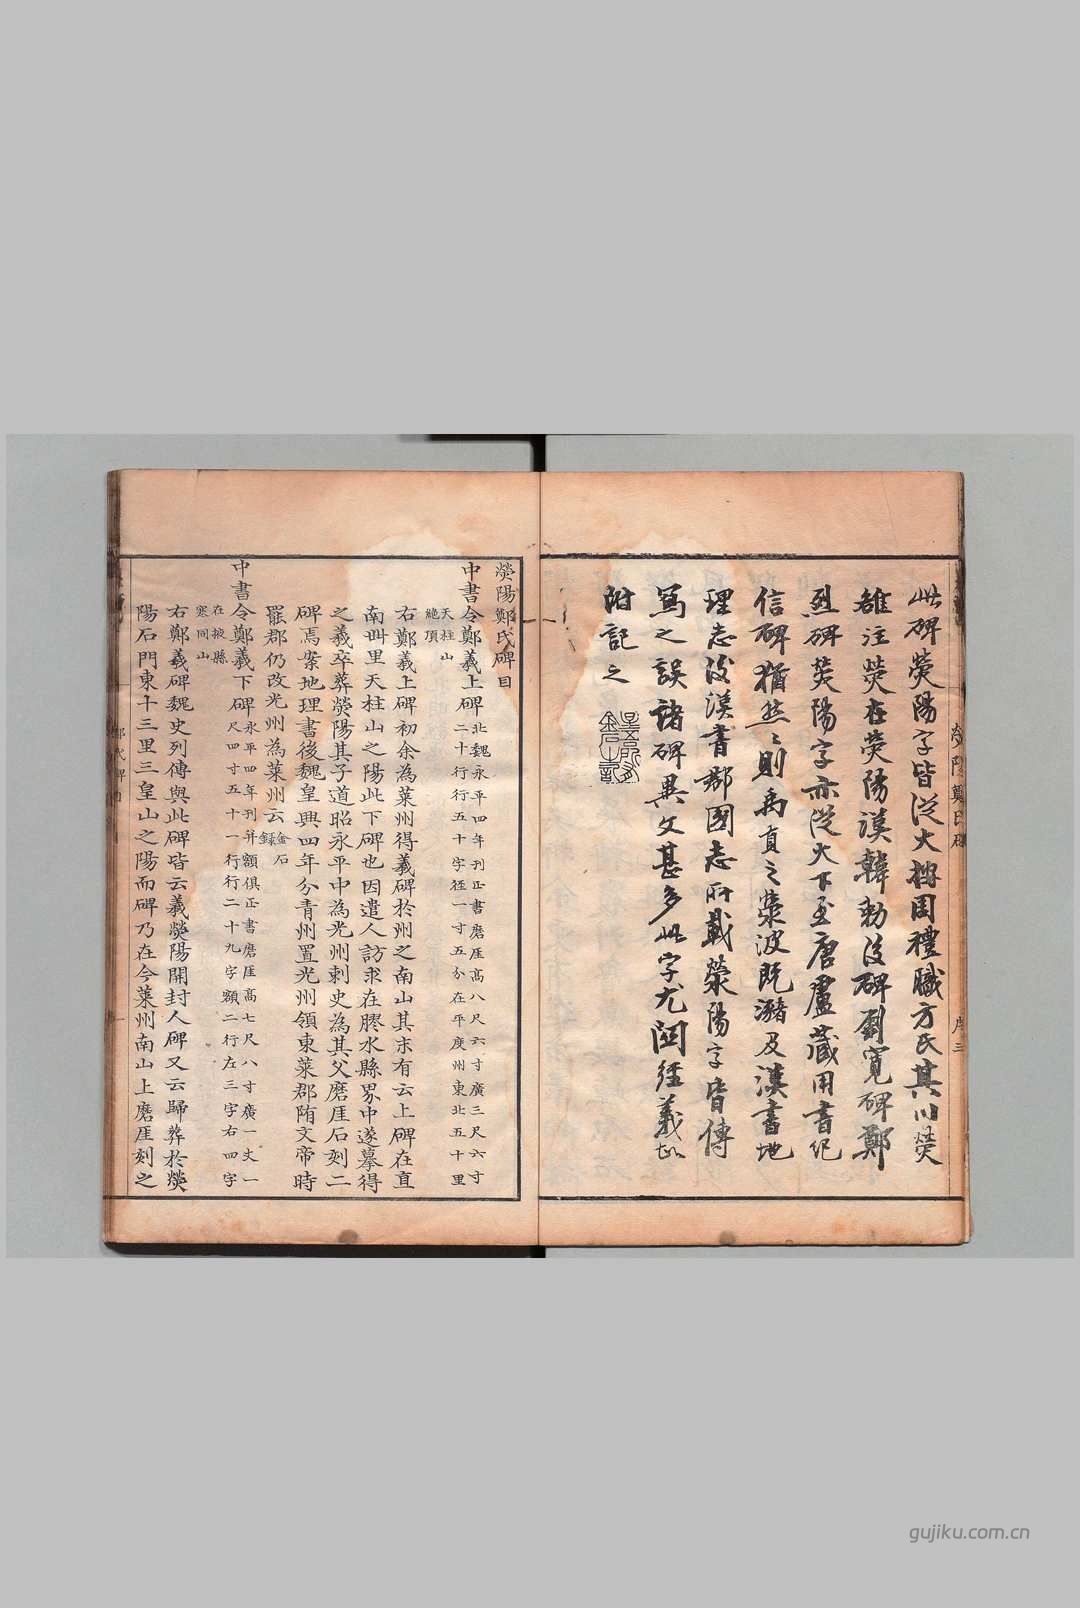 此碑熒陽字皆從火按周禮職方氏其川熒
雒注熒在熒陽漢韓勑後碑劉寬碑鄭
烈碑熒陽字亦從火下至唐盧藏用書紀
信碑猶然然則禹貢之滎波既瀦及漢書地
理志後漢書郡國志所載滎陽字皆傳
寫之誤諸碑異文甚多此字尤關經義故
附記之
熒陽鄭氏碑
序三
熒陽鄭氏碑目
中書令鄭羲上碑北魏永平四年刊正書磨厓高八尺六寸廣三尺六寸
二十行行五十字徑一寸五分在平度州東北五十里
天柱山
絕頂
右鄭羲上碑初余為萊州得羲碑於州之南山其末有云上碑在直
南卌里天柱山之陽此下碑也因遣人訪求在膠水縣界中遂摹得
之羲卒葬熒陽其子道昭永平中為光州刺史為其父磨厓石刻二
碑焉案地理書後魏皇興四年分青州置光州領東萊郡隋文帝時
罷郡仍改光州為萊州云金石
錄
中書令鄭羲下碑永平四年刊并額俱正書磨厓高七尺八寸廣一丈一
尺四寸五十一行行二十九字額二行左三字右四字
在掖縣
寒同山
右鄭羲碑魏史列傳與此碑皆云羲熒陽開封人碑又云歸葬於熒
陽石門東十三里三皇山之陽而碑乃在今萊州南山上磨厓刻之
gujiku.com.cn